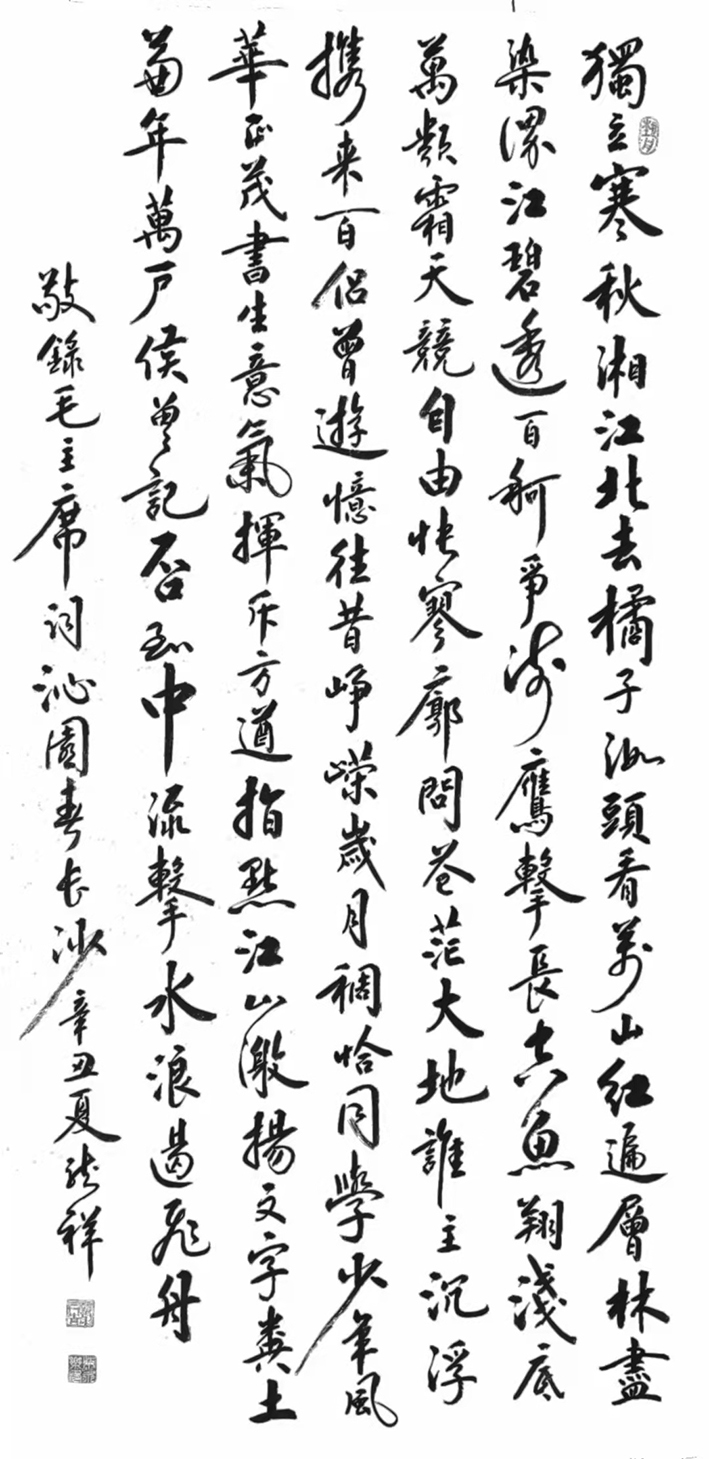 獨立寒秋湘江北去橘子洲頭看萬山紅遍層林盡
染漫江碧透百舸爭流鷹擊長空魚翔淺底
萬類霜天競自由悵寥廓問蒼茫大地誰主沉浮
携来百侣曾遊憶往昔崢嶸歲月稠恰同學少年風
華正茂書生意氣揮斥方遒指點江山激揚文字糞土
當年萬户侯曾記否到中流擊水浪遏飛舟
敬錄毛主席詞沁園春長沙辛丑夏祥